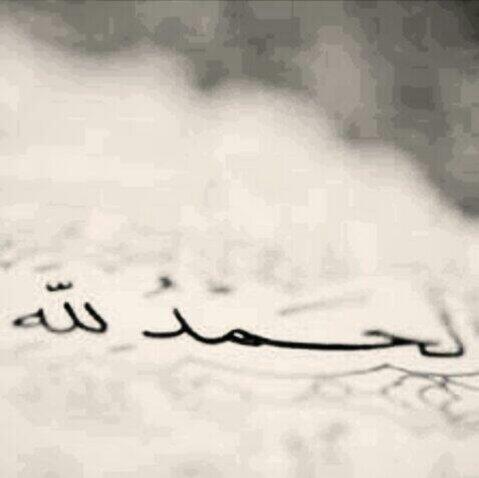 لحمدُ للّه